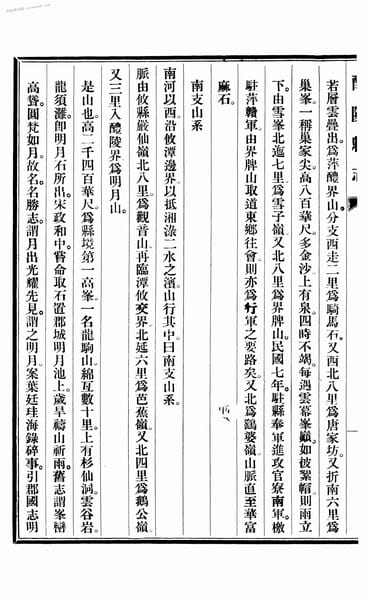 醴陵縣志
若層雲疊出爲萍醴界山分支西走二里爲騎馬石又西北八里爲唐家坊又折南六里爲
巢峯一稱巢家尖高八百華尺多金沙上有泉四時不竭每遇雲幕峯巓如披絮帽則雨立
下由雪峯北迤七里爲雪子嶺又北八里爲界牌山民國七年駐縣奉軍進攻官寮南軍檄
駐萍贛軍由界牌山取道東鄉往會則亦爲行軍之要路矣又北爲鷄婆嶺山脈直至華富
麻石
南支山系
南河以西沿攸潭邊界以抵湘淥二水之濱山行其中曰南支山系
脈由攸縣嚴仙嶺北八里爲觀音山再臨潭攸交界北延六里爲芭蕉嶺又北四里爲鵝公嶺
又三里入醴陵界爲明月山
是山也高二千四百華尺爲縣境第一高峯一名龍駒山綿互數十里上有杉仙洞雲谷岩
龍須灘卽明月石所出宋政和中嘗命取石置郡城明月池上歲旱禱山祈雨舊志謂峯巒
高聳圓梵如月故名名勝志謂月出光耀先見謂之明月案葉廷珪海錄碎事引郡國志明